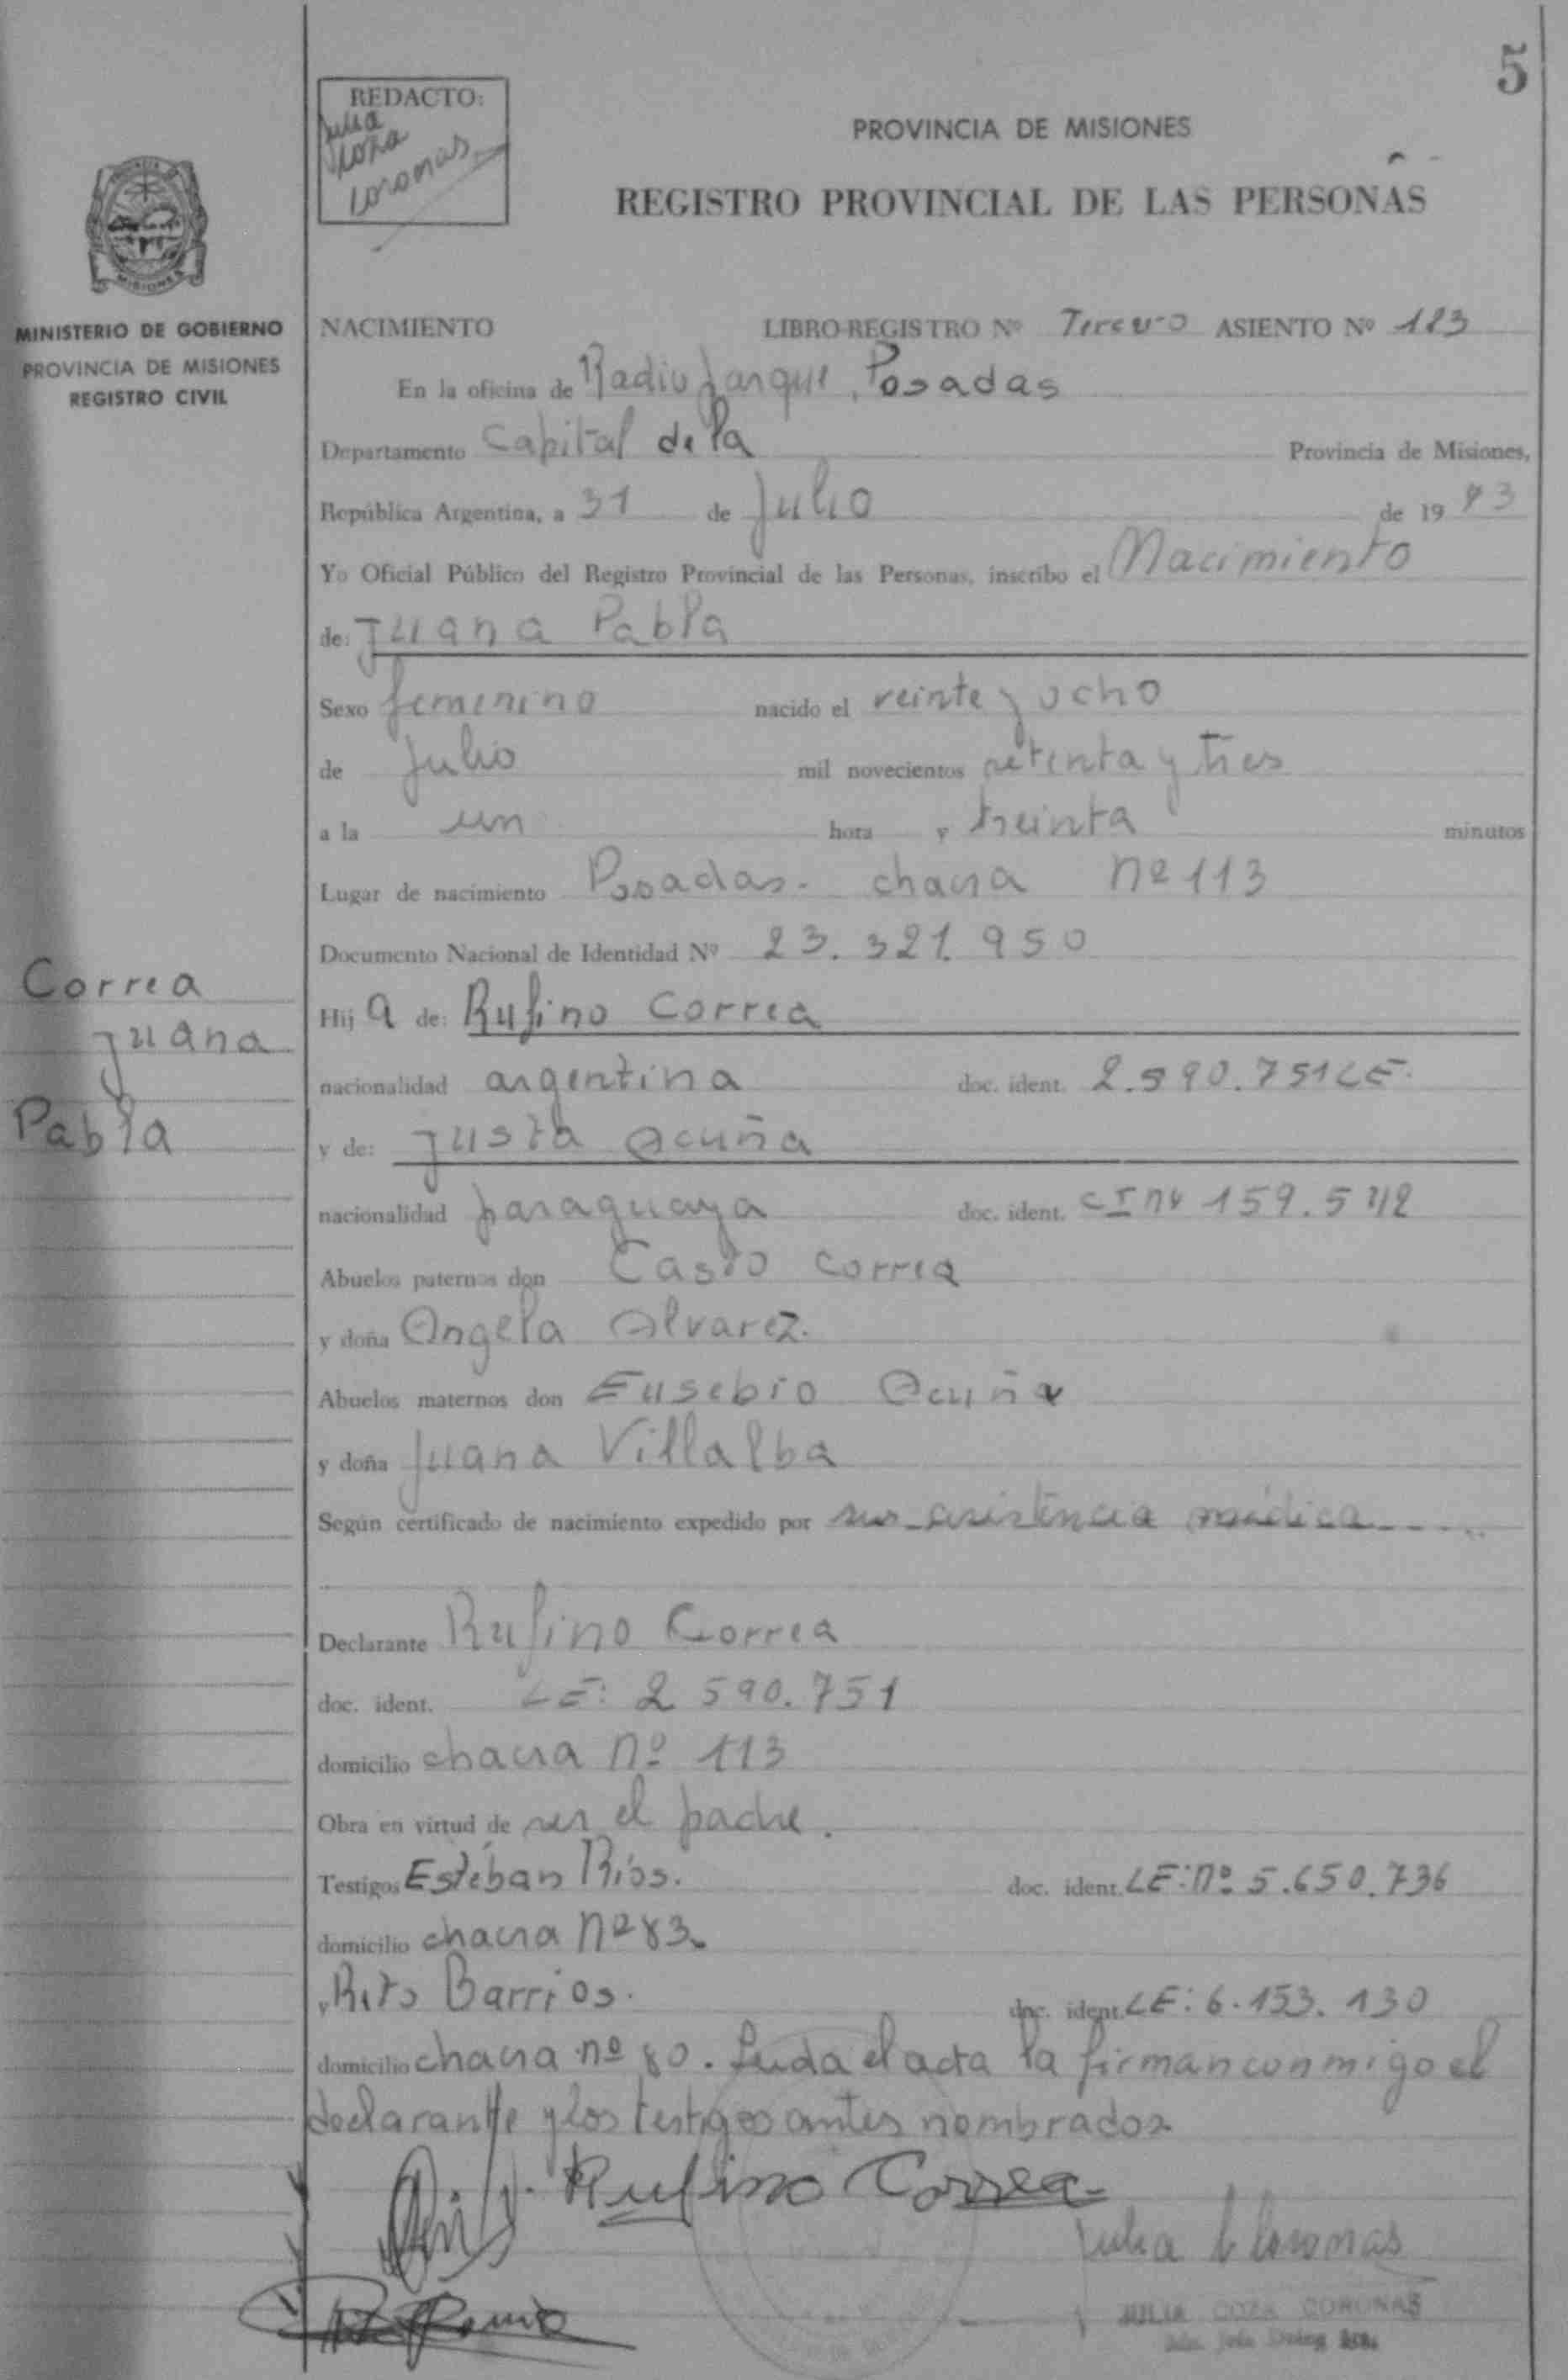 5
REDACTO:
Julia
Coza
Coronas
PROVINCIA DE MISIONES
REGISTRO PROVINCIAL DE LAS PERSONAS
PROVINCIA DE
MISIONES
MINISTERIO DE GOBIERNO
PROVINCIA DE MISIONES
REGISTRO CIVIL
NACIMIENTO LIBRO-REGISTRO Nº Tercero ASIENTO Nº 183
En la oficina de Radio parque, Posadas
Departamento Capital de la Provincia de Misiones,
República Argentina, a 31 de Julio de 19 73
Yo Oficial Público del Registro Provincial de las Personas, inscribo el Nacimiento
de: Juana Pabla
Sexo femenino nacido el veinte y ocho
de Julio mil novecientos setenta y tres
a la un hora y treinta minutos
Lugar de nacimiento Posadas. chacra nº 113
Documento Nacional de Identidad Nº 23.321.950
Correa
Juana
Pabla
Hij a de: Rufino Correa
nacionalidad argentina doc. ident. 2.590.751 LE.
y de: Justa Acuña
nacionalidad paraguaya doc. ident. CI nº 159.542
Abuelos paternos don Casto Correa
y doña Angela Alvarez.
Abuelos maternos don Eusebio Acuña
y doña Juana Villalba
Según certificado de nacimiento expedido por sin asistencia médica
Declarante Rufino Correa
doc. ident. LE: 2 590.751
domicilio chacra nº 113
Obra en virtud de ser el padre.
Testigos Estéban Ríos. doc. ident. LE: nº 5.650.736
domicilio chacra nº 83.
y Rito Barrios. doc. ident. LE: 6.153.130
domicilio chacra nº 80. Leida el acta la firman conmigo el
declarante y los testigos antes nombrados
Rufino Correa
Julia C Coronas
JULIA COZA CORONAS